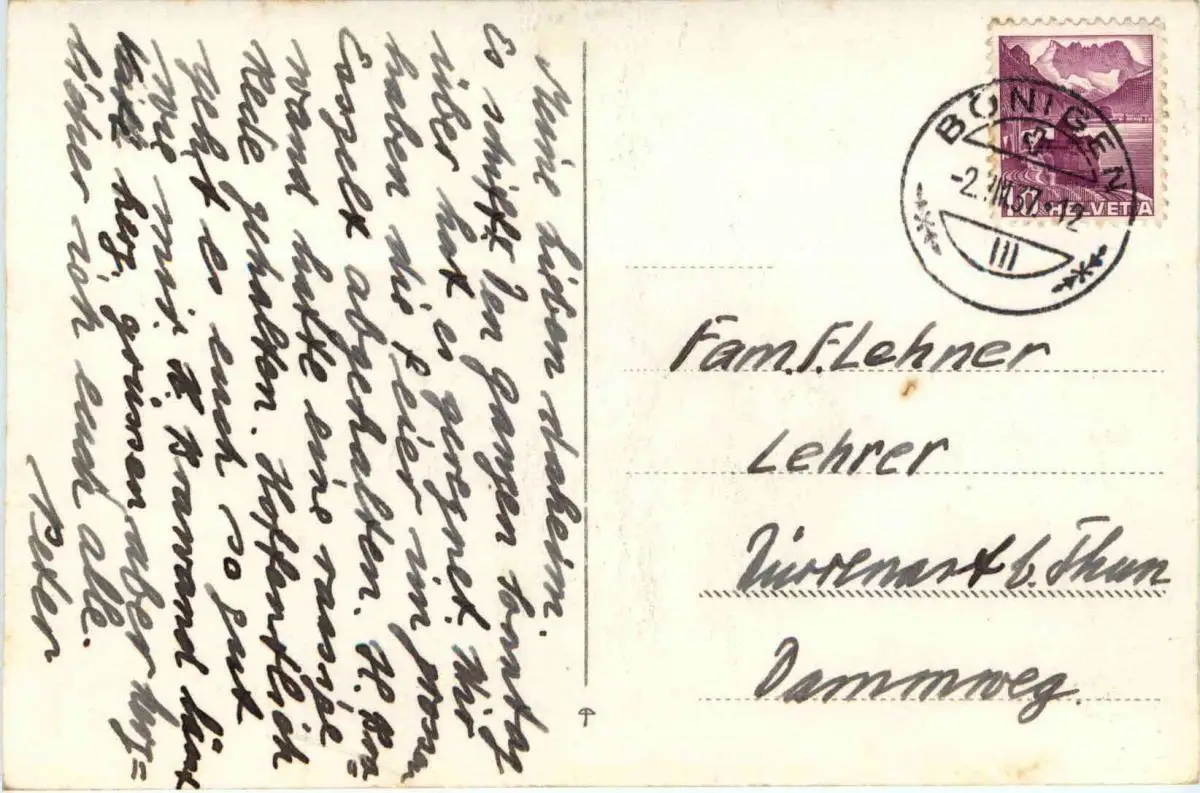 Meine lieben daheim.
Es schifft den ganzen
über hat es geregnet. Wir
haben die Feier im
Esszelt abgehalten. H. Bra=
wand hatte eine rassige
Rede gehalten. Hoffentlich
geht es euch so gut
wie mir. H. Brawand lässt
herz. grüssen, aber herz=
licher ich euch alle.
Peter
BÖNIGEN
-2.VIII.37-12
III
HELVETIA
Fam. F. Lehner
Lehrer
Dürrenast b. Thun
Dammweg.